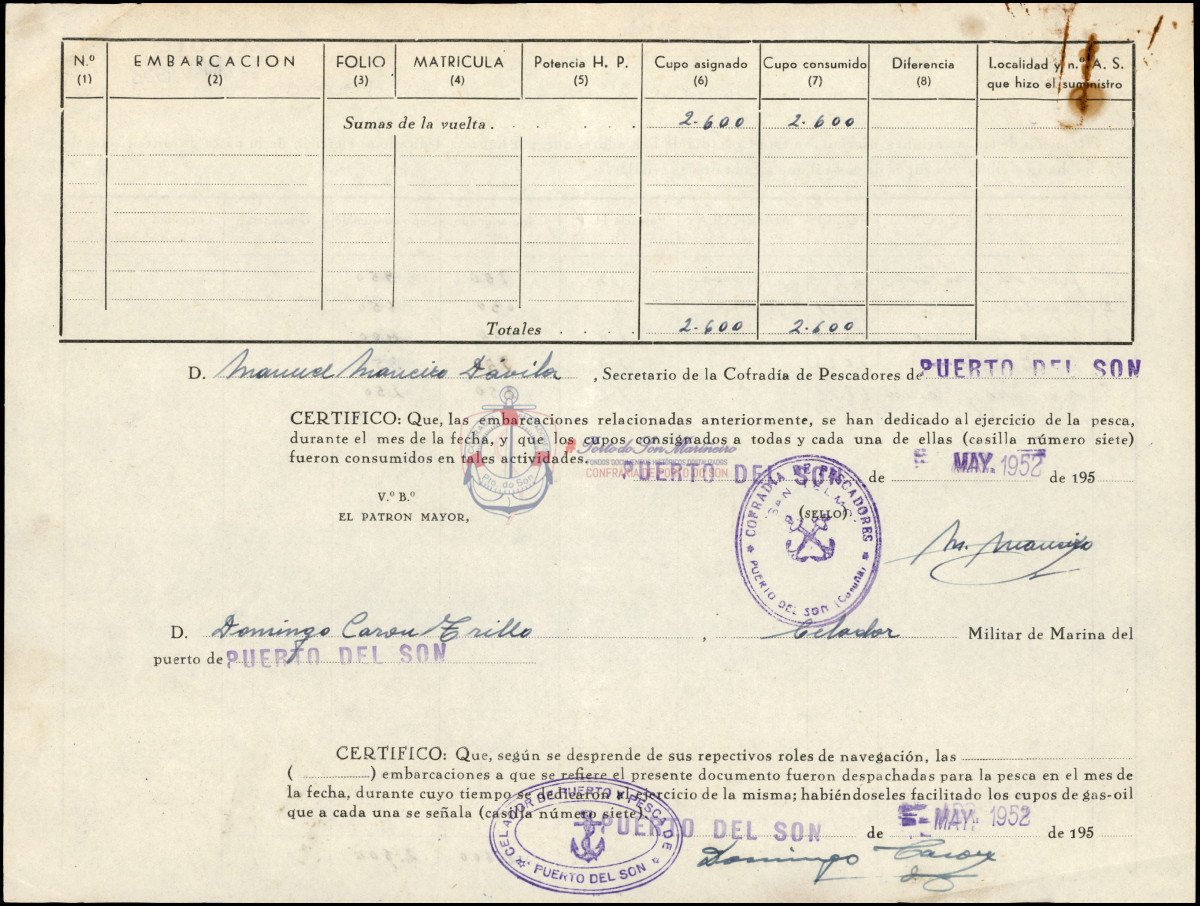 N.º EMBARCACION FOLIO MATRICULA Potencia H. P. Cupo asignado Cupo consumido Diferencia Localidad y n.º A. S.
(1) (2) (3) (4) (5) (6) (7) (8) que hizo el suministro
Sumas de la vuelta . . . . . 2.600 2.600
Totales . . . . 2.600 2.600
D. Manuel Maneiro Dávila , Secretario de la Cofradía de Pescadores de PUERTO DEL SON
CERTIFICO: Que, las embarcaciones relacionadas anteriormente, se han dedicado al ejercicio de la pesca,
durante el mes de la fecha, y que los cupos consignados a todas y cada una de ellas (casilla número siete)
fueron consumidos en tales actividades. PUERTO DEL SON de MAY. 1952 de 195
Porto do Son Marineiro
FONDOS DOCUMENTAIS HISTÓRICOS DIGITALIZADOS
CONFRARÍA DE PORTO DO SON
Pto. do Son
V.º B.º
EL PATRON MAYOR,
(SELLO)
COFRADIA DE PESCADORES
SAN TELMO
PUERTO DEL SON (Coruña)
M. Maneiro
D. Domingo Carou Trillo , Celador Militar de Marina del
puerto de PUERTO DEL SON
CERTIFICO: Que, según se desprende de sus repectivos roles de navegación, las
( ) embarcaciones a que se refiere el presente documento fueron despachadas para la pesca en el mes de
la fecha, durante cuyo tiempo se dedicaron al ejercicio de la misma; habiéndoseles facilitado los cupos de gas-oil
que a cada una se señala (casilla número siete).
PUERTO DEL SON de MAY. 1952 de 195
CELADOR DE PUERTO Y PESCA DE
PUERTO DEL SON
Domingo Carou